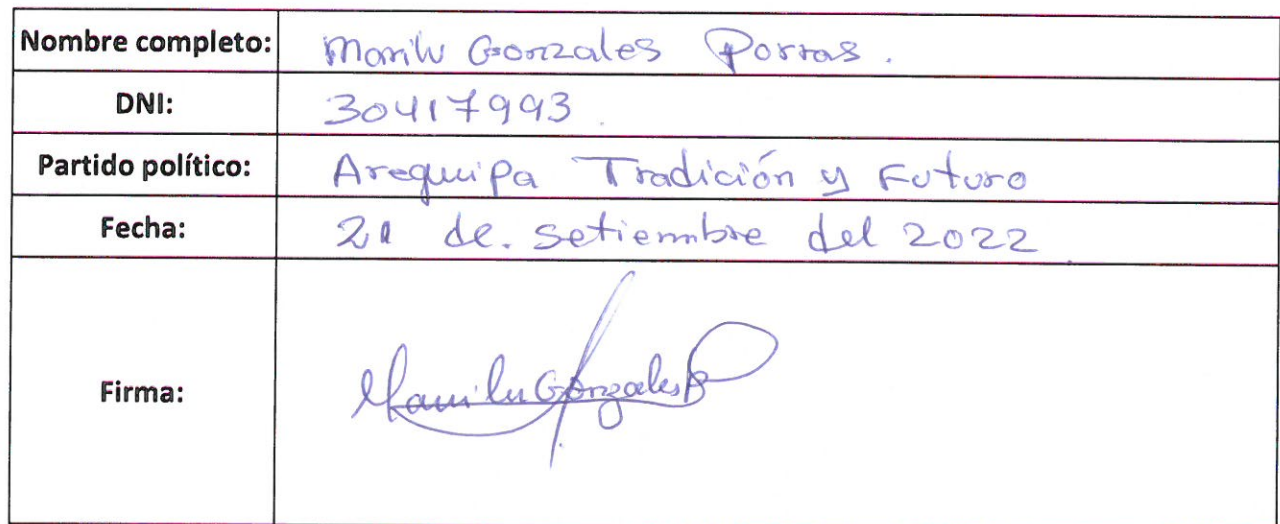 Nombre completo: Marilu Gonzales Porras.
DNI: 30417993
Partido político: Arequipa Tradición y Futuro
Fecha: 21 de. setiembre del 2022
Firma: Marilu Gonzales P